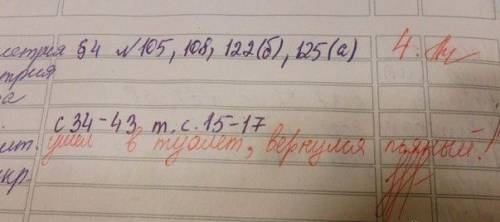 метрия §4 №105, 108, 122(б), 125(а) 4.
трия
а
с 34-43 т.с. 15-17
лит. ушел в туалет, вернулся пьяный!
укр.